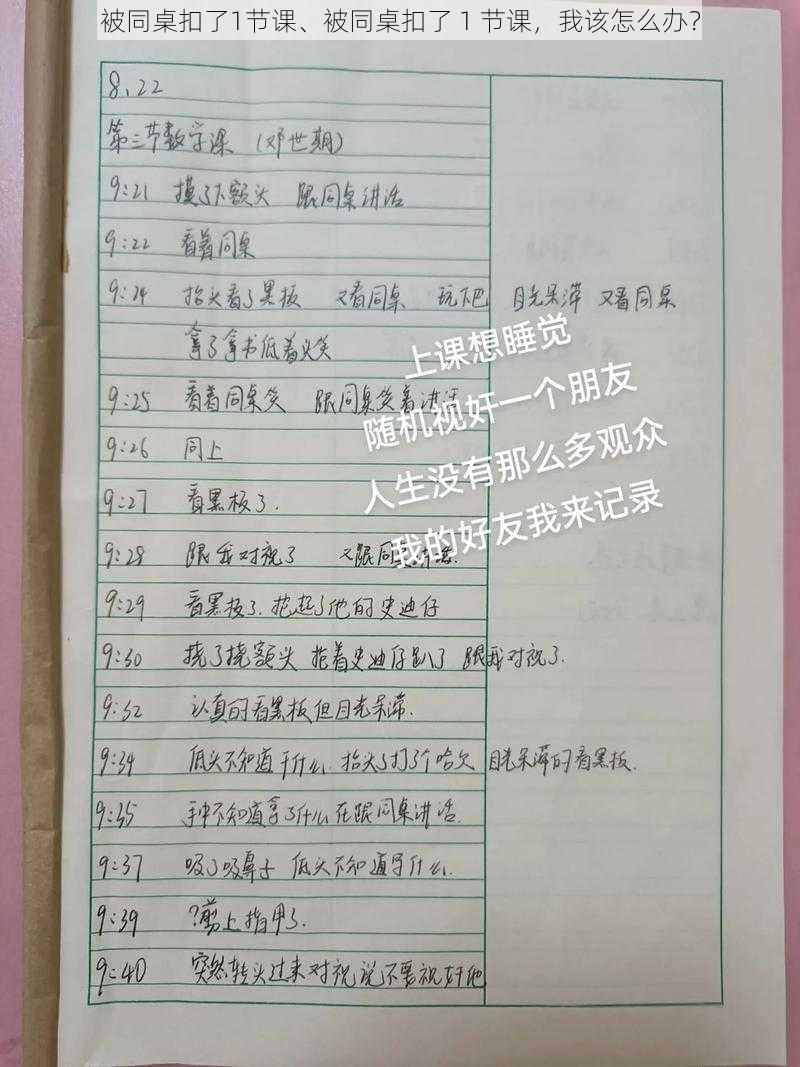 被同桌扣了1节课、被同桌扣了１节课，我该怎么办？
8.22
第三节数学课（邓世期）
9:21 摸了下额头 跟同桌讲话
9:22 看着同桌
9:24 抬头看了黑板 又看同桌 玩下巴 目光呆滞 又看同桌
拿了拿书低着头笑
9:25 看着同桌笑 跟同桌笑着讲话
9:26 同上
9:27 看黑板了.
9:28 跟我对视了 又跟同桌讲话.
9:29 看黑板了.抱起了他的史迪仔
9:30 挠了挠额头 抱着史迪仔趴了 跟我对视了.
9:32 认真的看黑板但目光呆滞.
9:34 低头不知道干什么.抬头了打了个哈欠 目光呆滞的看黑板.
9:35 手中不知道拿了什么在跟同桌讲话.
9:37 吸了吸鼻子 低头不知道写什么.
9:39 ?剪上指甲了.
9:40 突然转头过来对视说不要视奸他
上课想睡觉
随机视奸一个朋友
人生没有那么多观众
我的好友我来记录